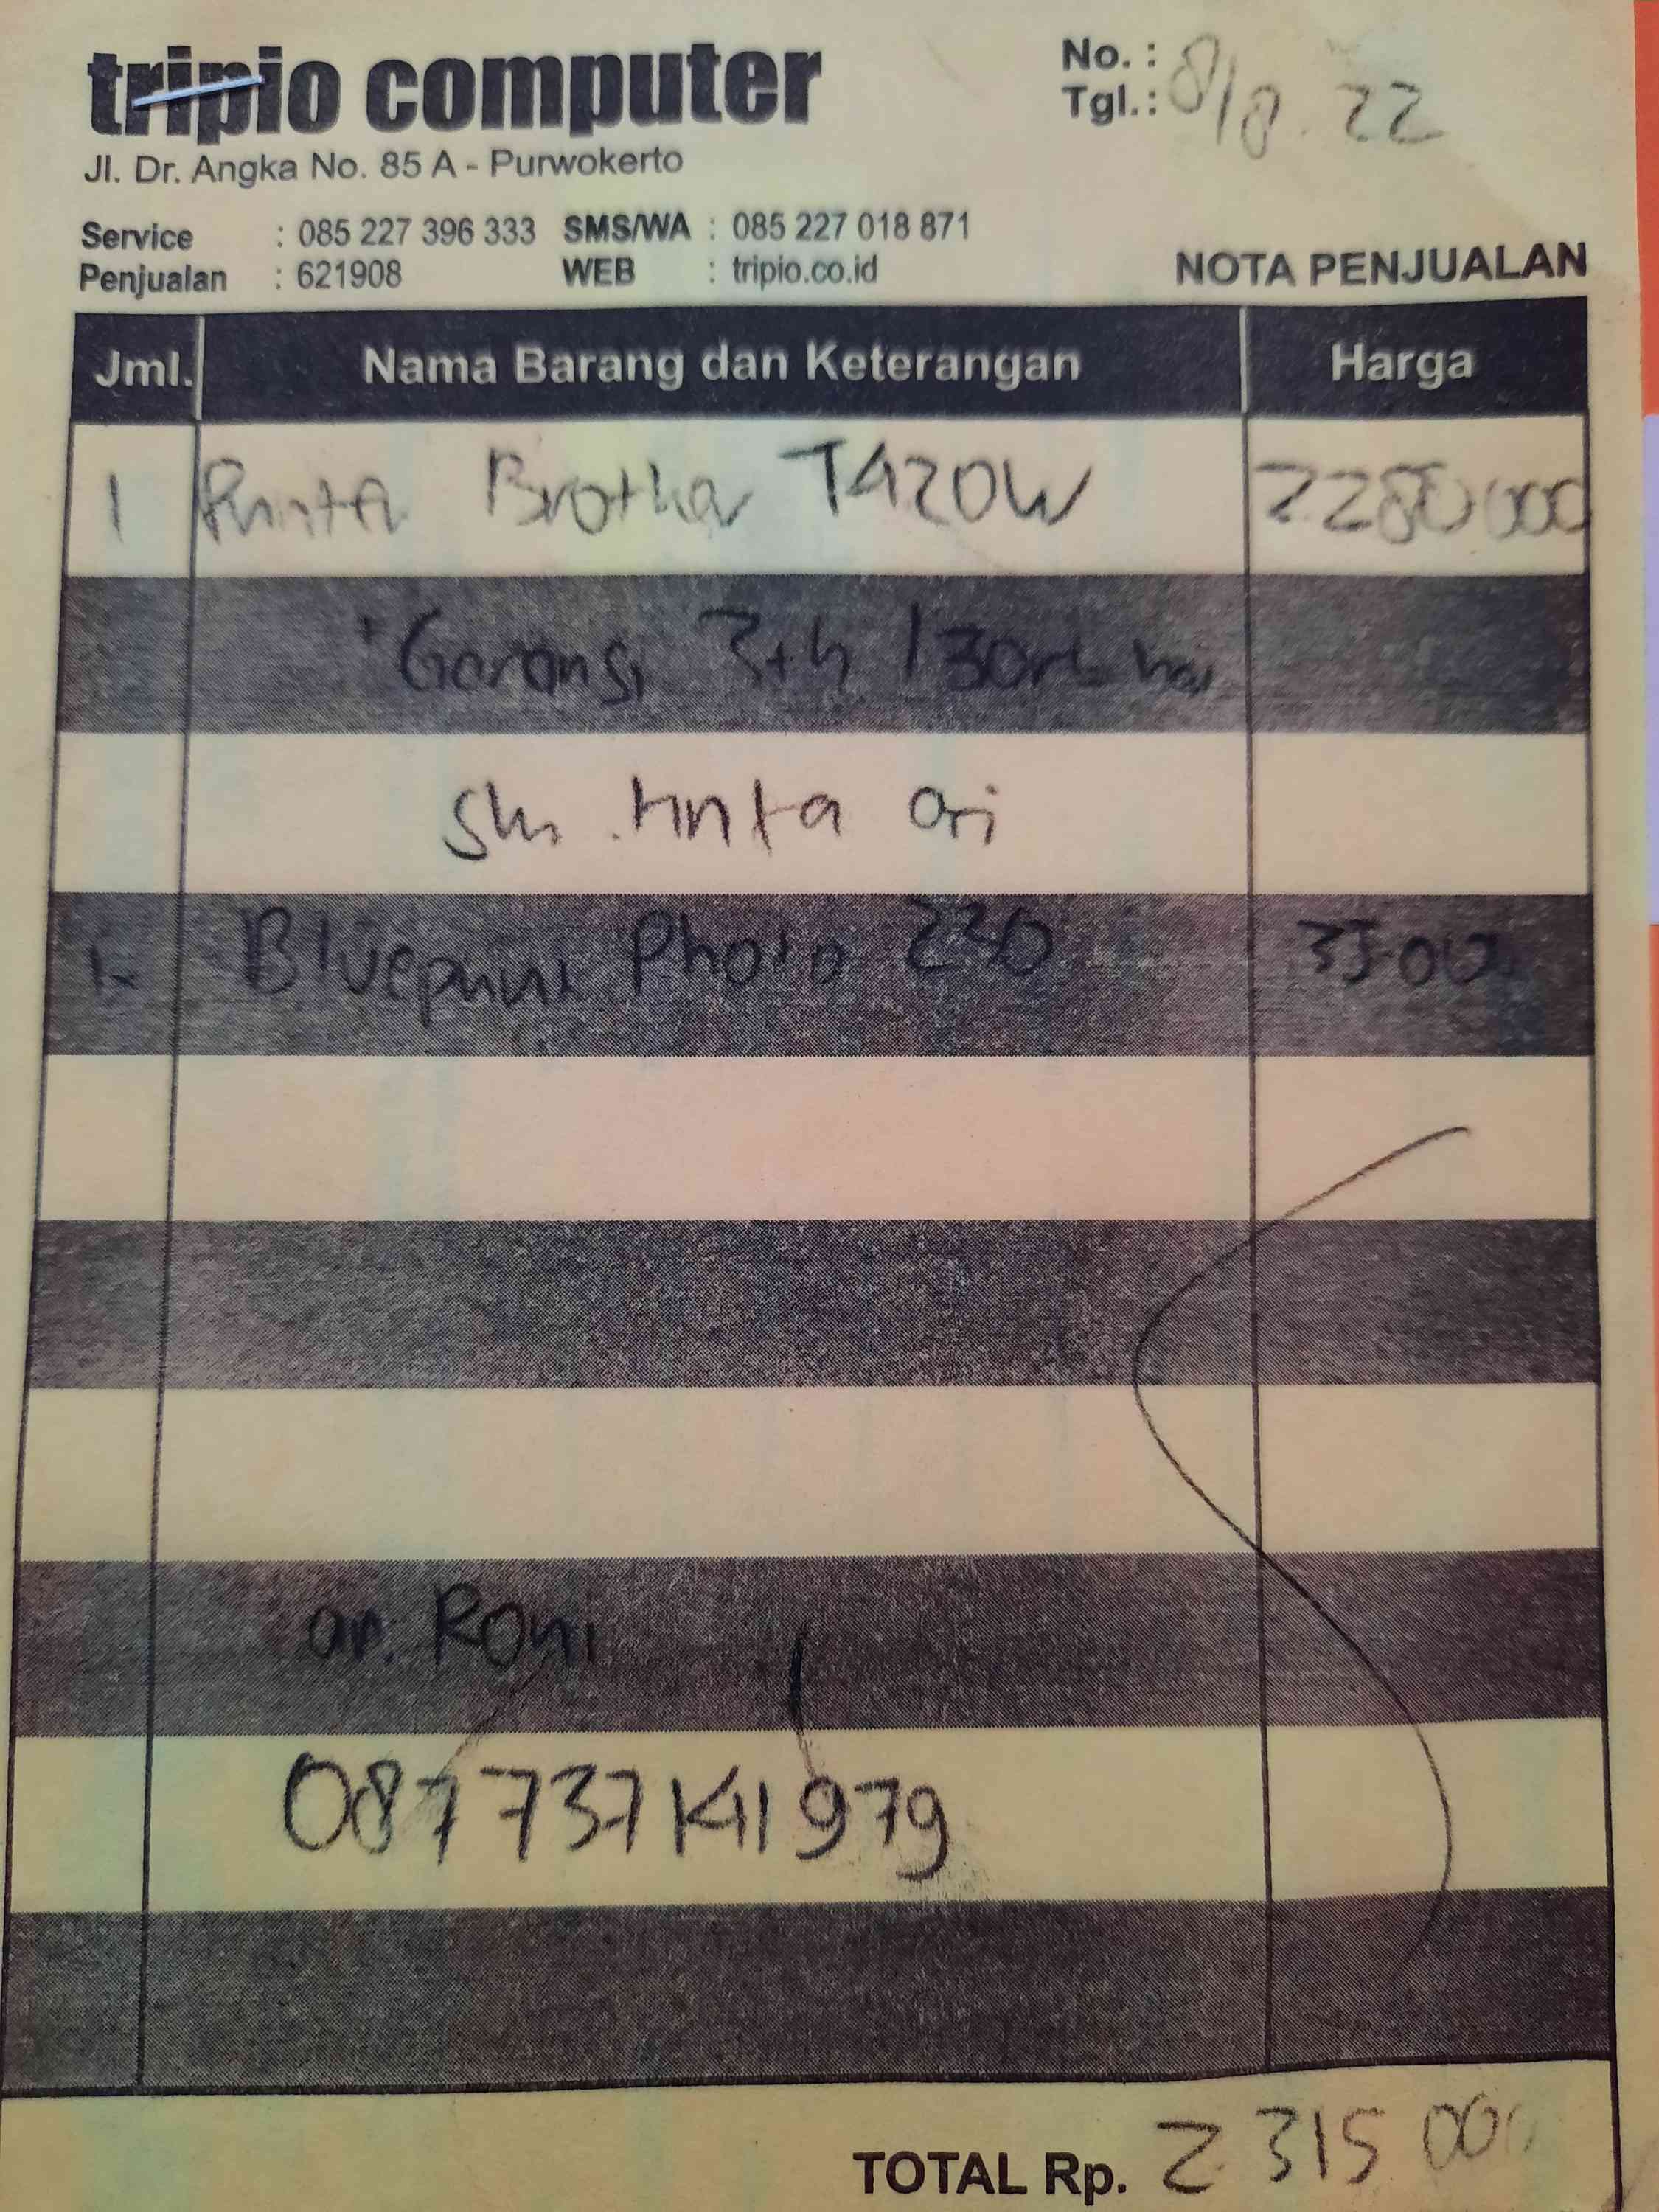 tripio computer
No. :
Jl. Dr. Angka No. 85 A - Purwokerto
Tgl. : 8/8.22
Service : 085 227 396 333 SMS/WA : 085 227 018 871
Penjualan : 621908 WEB : tripio.co.id
NOTA PENJUALAN
Jml. Nama Barang dan Keterangan Harga
1 Printer Brother T420W 2280000
Garansi 3th / 30rb
tinta ori
Blueprint Photo 230 35.000
an. Roni
087737141979
TOTAL Rp. 2.315 000